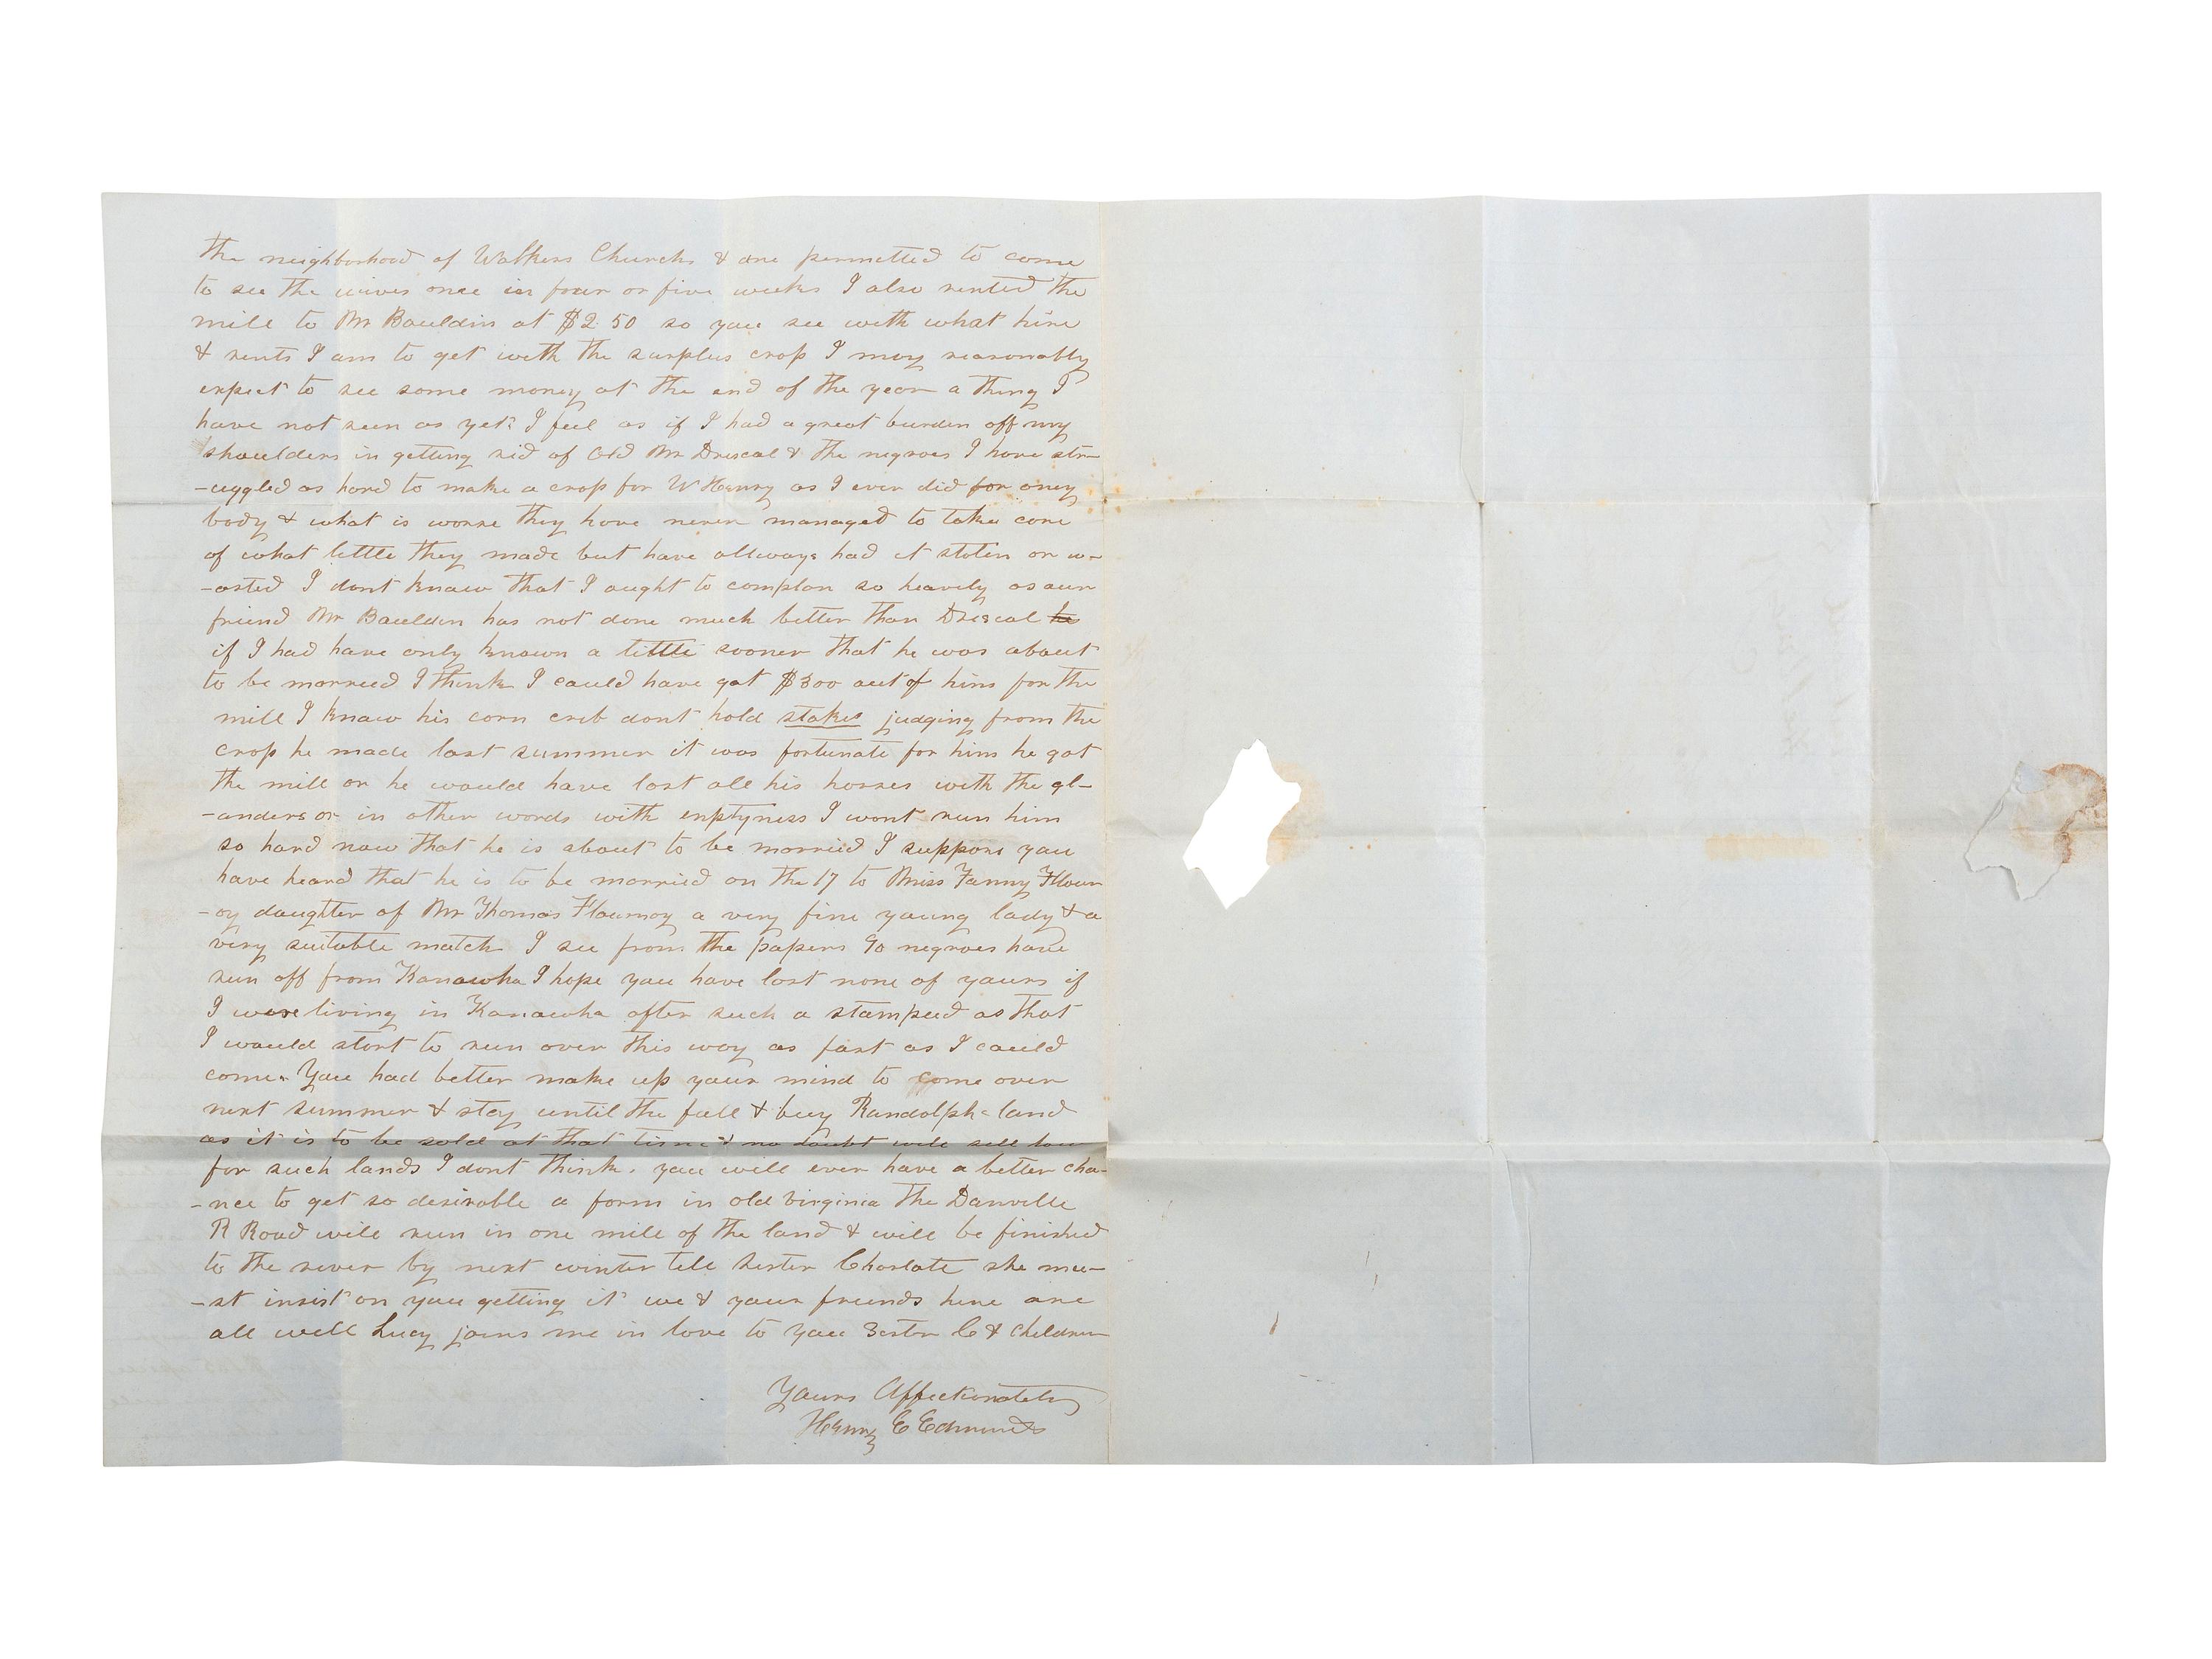 the neighborhood of Walkers Church & are permetted to come
to see the wives once in four or five weeks I also rented the
mill to Mr Bauldin at $2 50 so you see with what hire
& rents I am to get with the surplus crop I may reasonably
expect to see some money at the end of the year a thing I
have not seen as yet I feel as if I had a great burden off my
shoulders in getting rid of Old Mr Driscal & the negroes I have str-
-uggled as hard to make a crop for W Henry as I ever did for any
body & what is worse they have never managed to take care
of what little they made but have allways had it stolen or w-
-asted I dont know that I aught to complan so heavily as our
friend Mr Bauldin has not done much better than Driscal he
if I had have only known a little sooner that he was about
to be married I think I could have got $300 out of him for the
mill I know his corn crib dont hold stakes judging from the
crop he made last summer it was fortunate for him he got
the mill or he would have lost all his horses with the gl-
-anders or in other words with emptyness I wont run him
so hard now that he is about to be married I suppose you
have heard that he is to be married on the 17 to Miss Fanny Flour
-oy daughter of Mr Thomas Flournoy a very fine young lady & a
very suitable match I see from the papers 90 negroes have
run off from Kanawha I hope you have lost none of yours if
I were living in Kanawha after such a stamped as that
I would start to run over this way as fast as I could
come. You had better make up your mind to come over
next summer & stay until the fall & buy Randolph land
as it is to be sold at that time & no doubt will sell low
for such lands I dont think you will ever have a better cha-
-nce to get so desirable a farm in old virginia The Danville
R Road will run in one mile of the land & will be finished
to the river by next winter tell sister Charlate she mu-
-st insist on you getting it we & your friends here are
all well Lucy joins me in love to you Sister C & children
Yours Affectionately
Henry E Edmunds